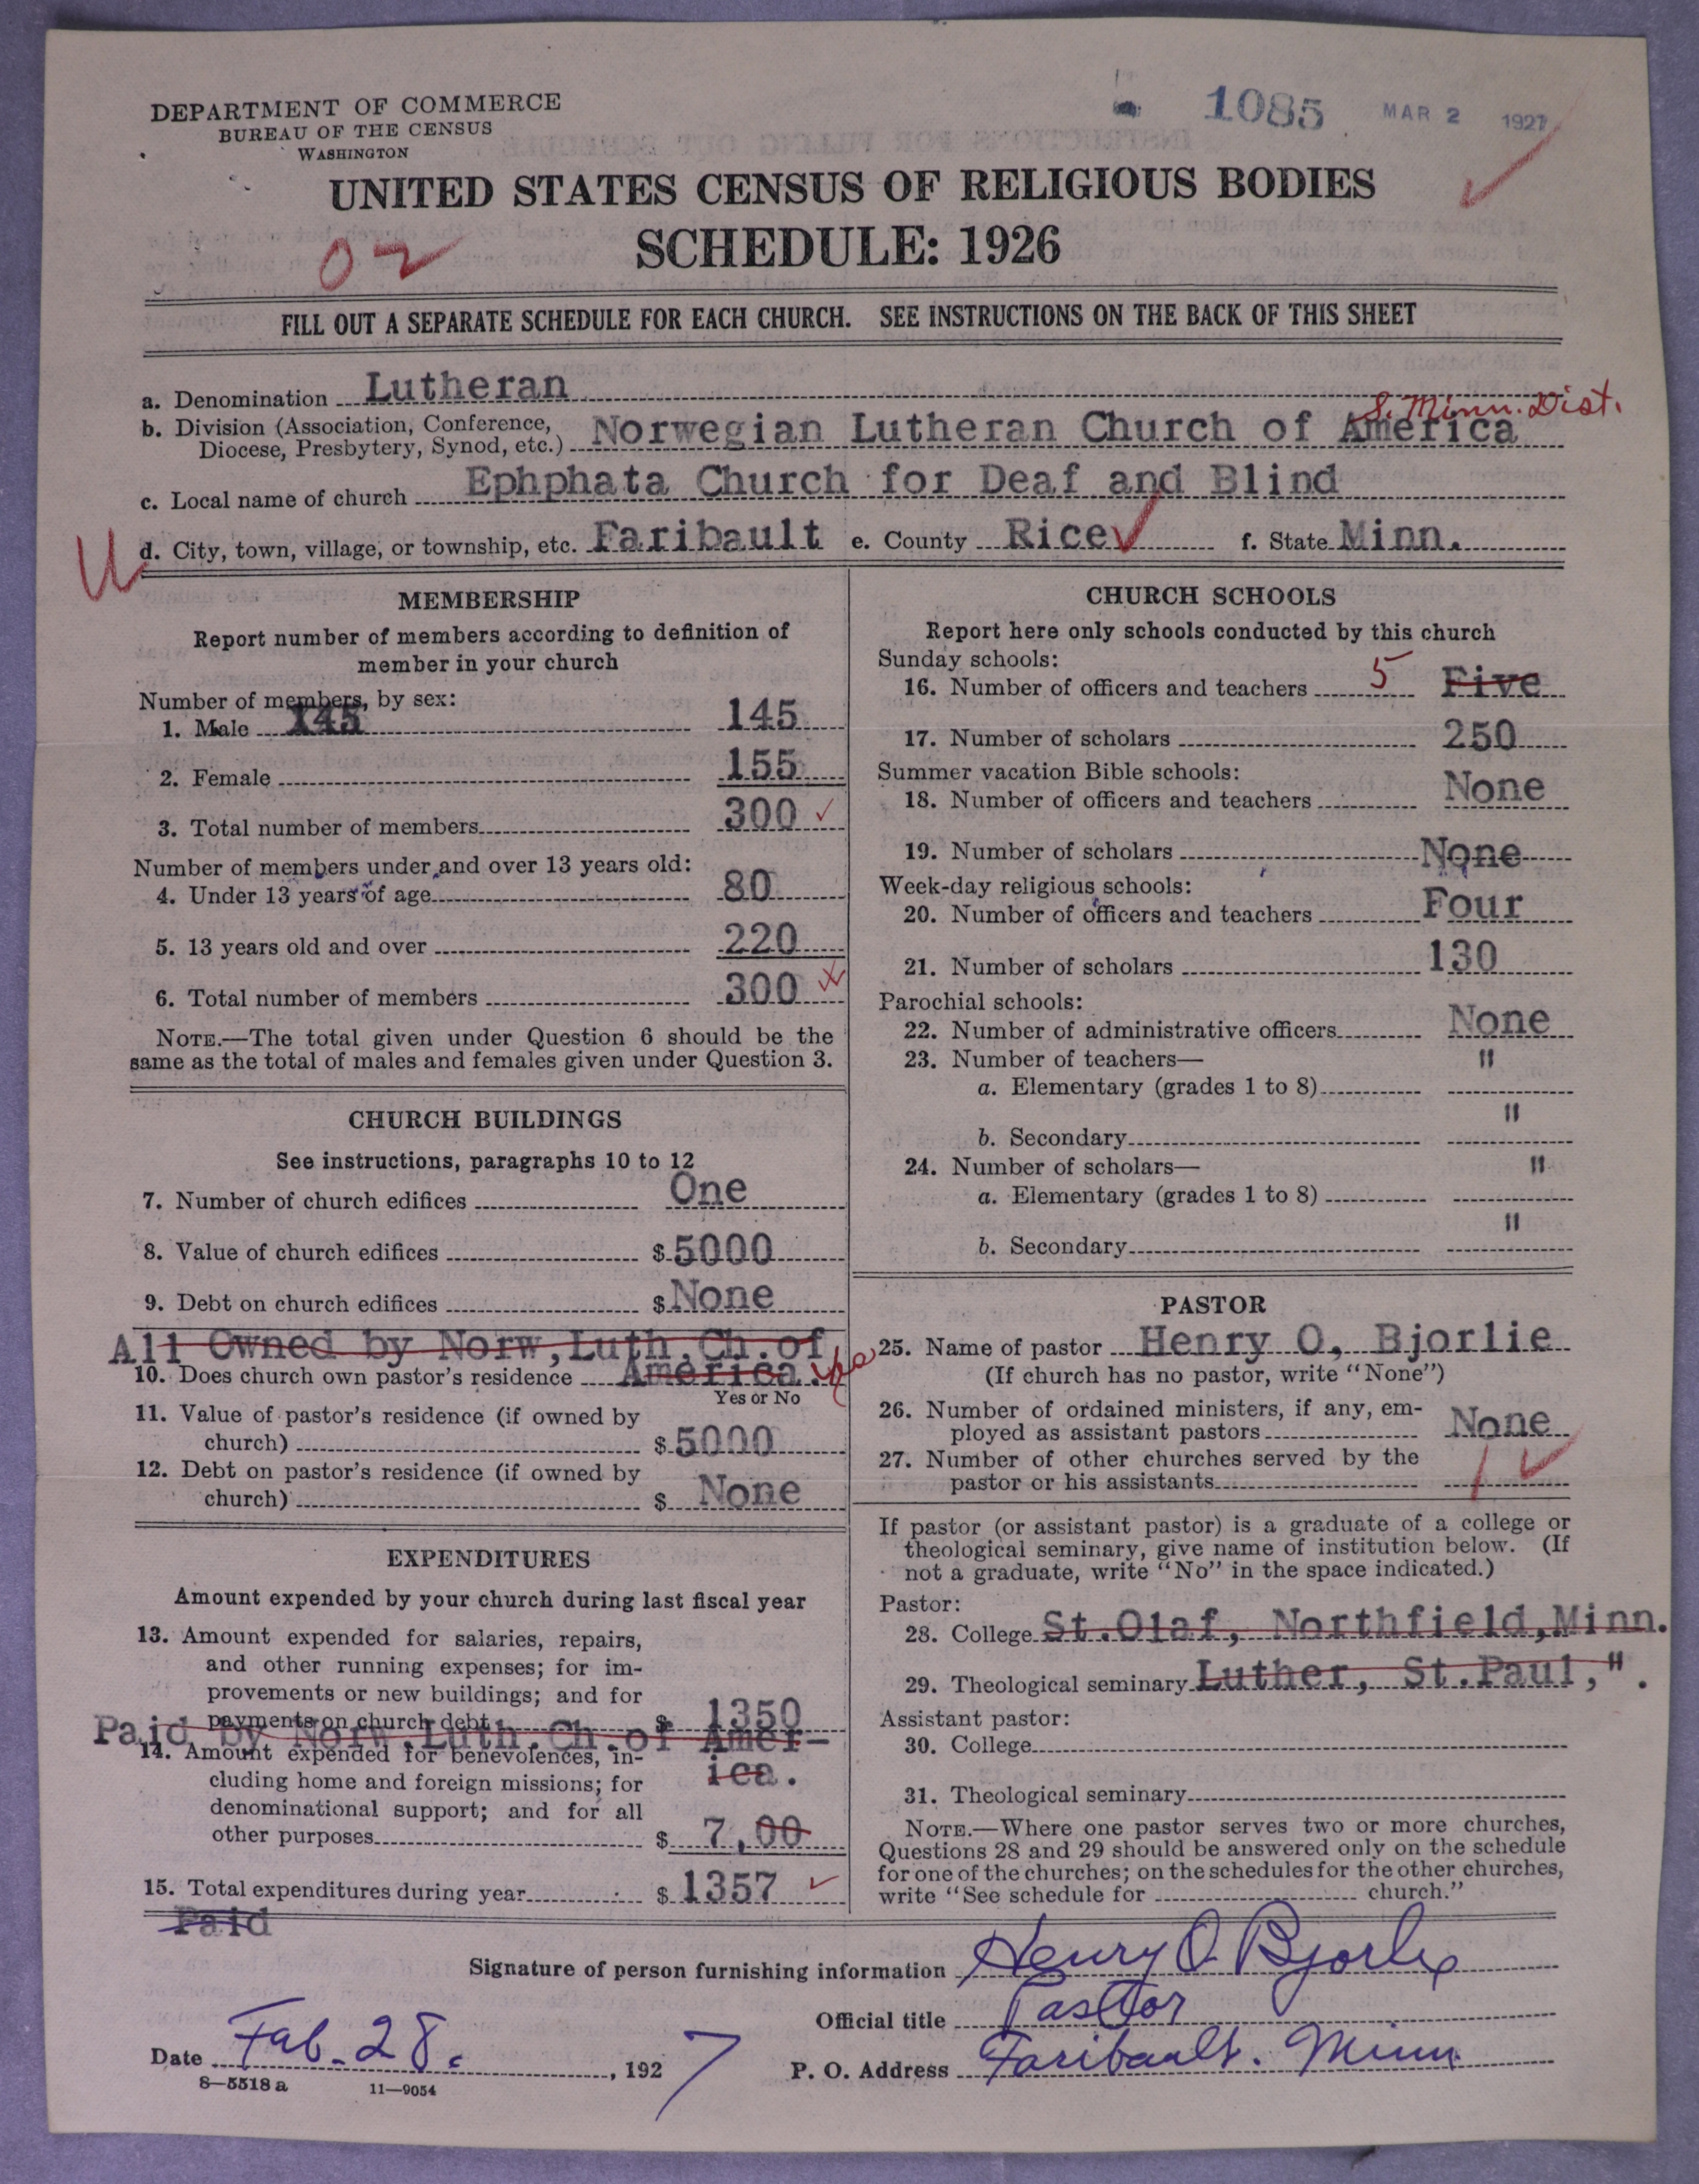 DEPARTMENT OF COMMERCE
BUREAU OF THE CENSUS
WASHINGTON
1085 MAR 2 1927
UNITED STATES CENSUS OF RELIGIOUS BODIES
SCHEDULE: 1926
02
FILL OUT A SEPARATE SCHEDULE FOR EACH CHURCH. SEE INSTRUCTIONS ON THE BACK OF THIS SHEET
a. Denomination Lutheran
S. Minn. Dist.
b. Division (Association, Conference,
Diocese, Presbytery, Synod, etc.) Norwegian Lutheran Church of America
c. Local name of church Ephphata Church for Deaf and Blind
d. City, town, village, or township, etc. Faribault e. County Rice f. State Minn.
MEMBERSHIP
Report number of members according to definition of
member in your church
Number of members, by sex:
1. Male 145 145
2. Female 155
3. Total number of members 300
Number of members under and over 13 years old:
4. Under 13 years of age 80
5. 13 years old and over 220
6. Total number of members 300
NOTE.—The total given under Question 6 should be the
same as the total of males and females given under Question 3.
CHURCH BUILDINGS
See instructions, paragraphs 10 to 12
7. Number of church edifices One
8. Value of church edifices $ 5000
9. Debt on church edifices $ None
All Owned by Norw, Luth. Ch. of
10. Does church own pastor's residence America.
Yes or No
11. Value of pastor's residence (if owned by
church) $ 5000
12. Debt on pastor's residence (if owned by
church) $ None
EXPENDITURES
Amount expended by your church during last fiscal year
13. Amount expended for salaries, repairs,
and other running expenses; for im-
provements or new buildings; and for
payments on church debt $ 1350
Paid by Norw. Luth. Ch. of Amer-
14. Amount expended for benevolences, in-
ica.
cluding home and foreign missions; for
denominational support; and for all
other purposes $ 7,00
15. Total expenditures during year $ 1357
Paid
CHURCH SCHOOLS
Report here only schools conducted by this church
Sunday schools:
16. Number of officers and teachers 5 Five
17. Number of scholars 250
Summer vacation Bible schools:
18. Number of officers and teachers None
19. Number of scholars None
Week-day religious schools:
20. Number of officers and teachers Four
21. Number of scholars 130
Parochial schools:
22. Number of administrative officers None
23. Number of teachers— "
a. Elementary (grades 1 to 8)
"
b. Secondary
24. Number of scholars— "
a. Elementary (grades 1 to 8)
"
b. Secondary
PASTOR
25. Name of pastor Henry O. Bjorlie
(If church has no pastor, write "None")
26. Number of ordained ministers, if any, em-
ployed as assistant pastors None
27. Number of other churches served by the
pastor or his assistants 1
If pastor (or assistant pastor) is a graduate of a college or
theological seminary, give name of institution below. (If
not a graduate, write "No" in the space indicated.)
Pastor:
28. College St. Olaf, Northfield, Minn.
29. Theological seminary Luther, St. Paul, " .
Assistant pastor:
30. College
31. Theological seminary
NOTE.—Where one pastor serves two or more churches,
Questions 28 and 29 should be answered only on the schedule
for one of the churches; on the schedules for the other churches,
write "See schedule for church."
Signature of person furnishing information Henry O. Bjorlie
Official title Pastor
Date Feb. 28. , 1927 P. O. Address Faribault. Minn
8—5518 a 11—9054